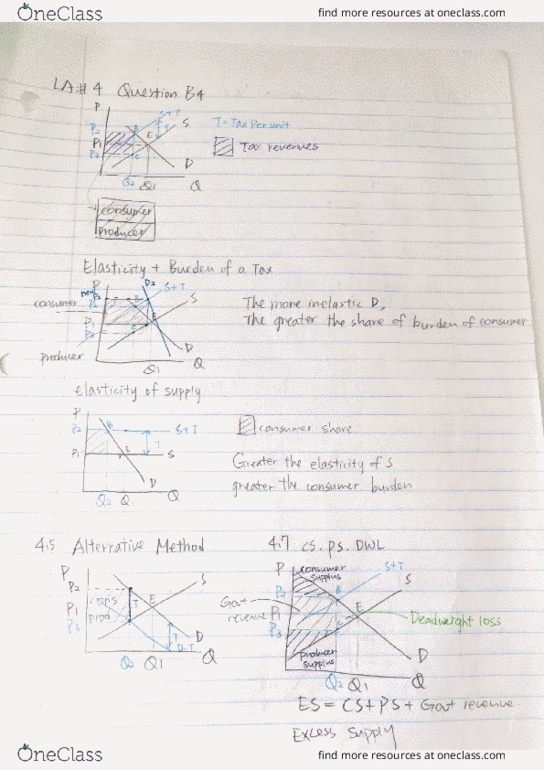 OneClass
find more resources at oneclass.com
LA#4 Question B4
P
S+T
P2
P1
P3
B
E
C
T
S
D
Q2 Q1 Q
T = Tax Per unit
Tax revenues
consumer
producer
Elasticity + Burden of a Tax
P
D2
S+T
S
consumer
P1
producer
D
Q1
Q
The more inelastic D,
The greater the share of burden of consumer
elasticity of supply
P
P2
B
S+T
T
P1
E
S
D
Q2 Q1 Q
consumer share
Greater the elasticity of S
greater the consumer burden
4.5 Alterrative Method
P
P2
P1
P3
S
T
E
T
D
D-T
Q2 Q1 Q
4.7 CS. PS. DWL
P
consumer
supplus
S+T
S
P2
B
Gov't
revenue
P1
E
P3
C
Deadweight loss
producer
supplus
D
Q2 Q1 Q
ES = CS + PS + Gov't revenue.
Excess Supply
OneClass
find more resources at oneclass.com